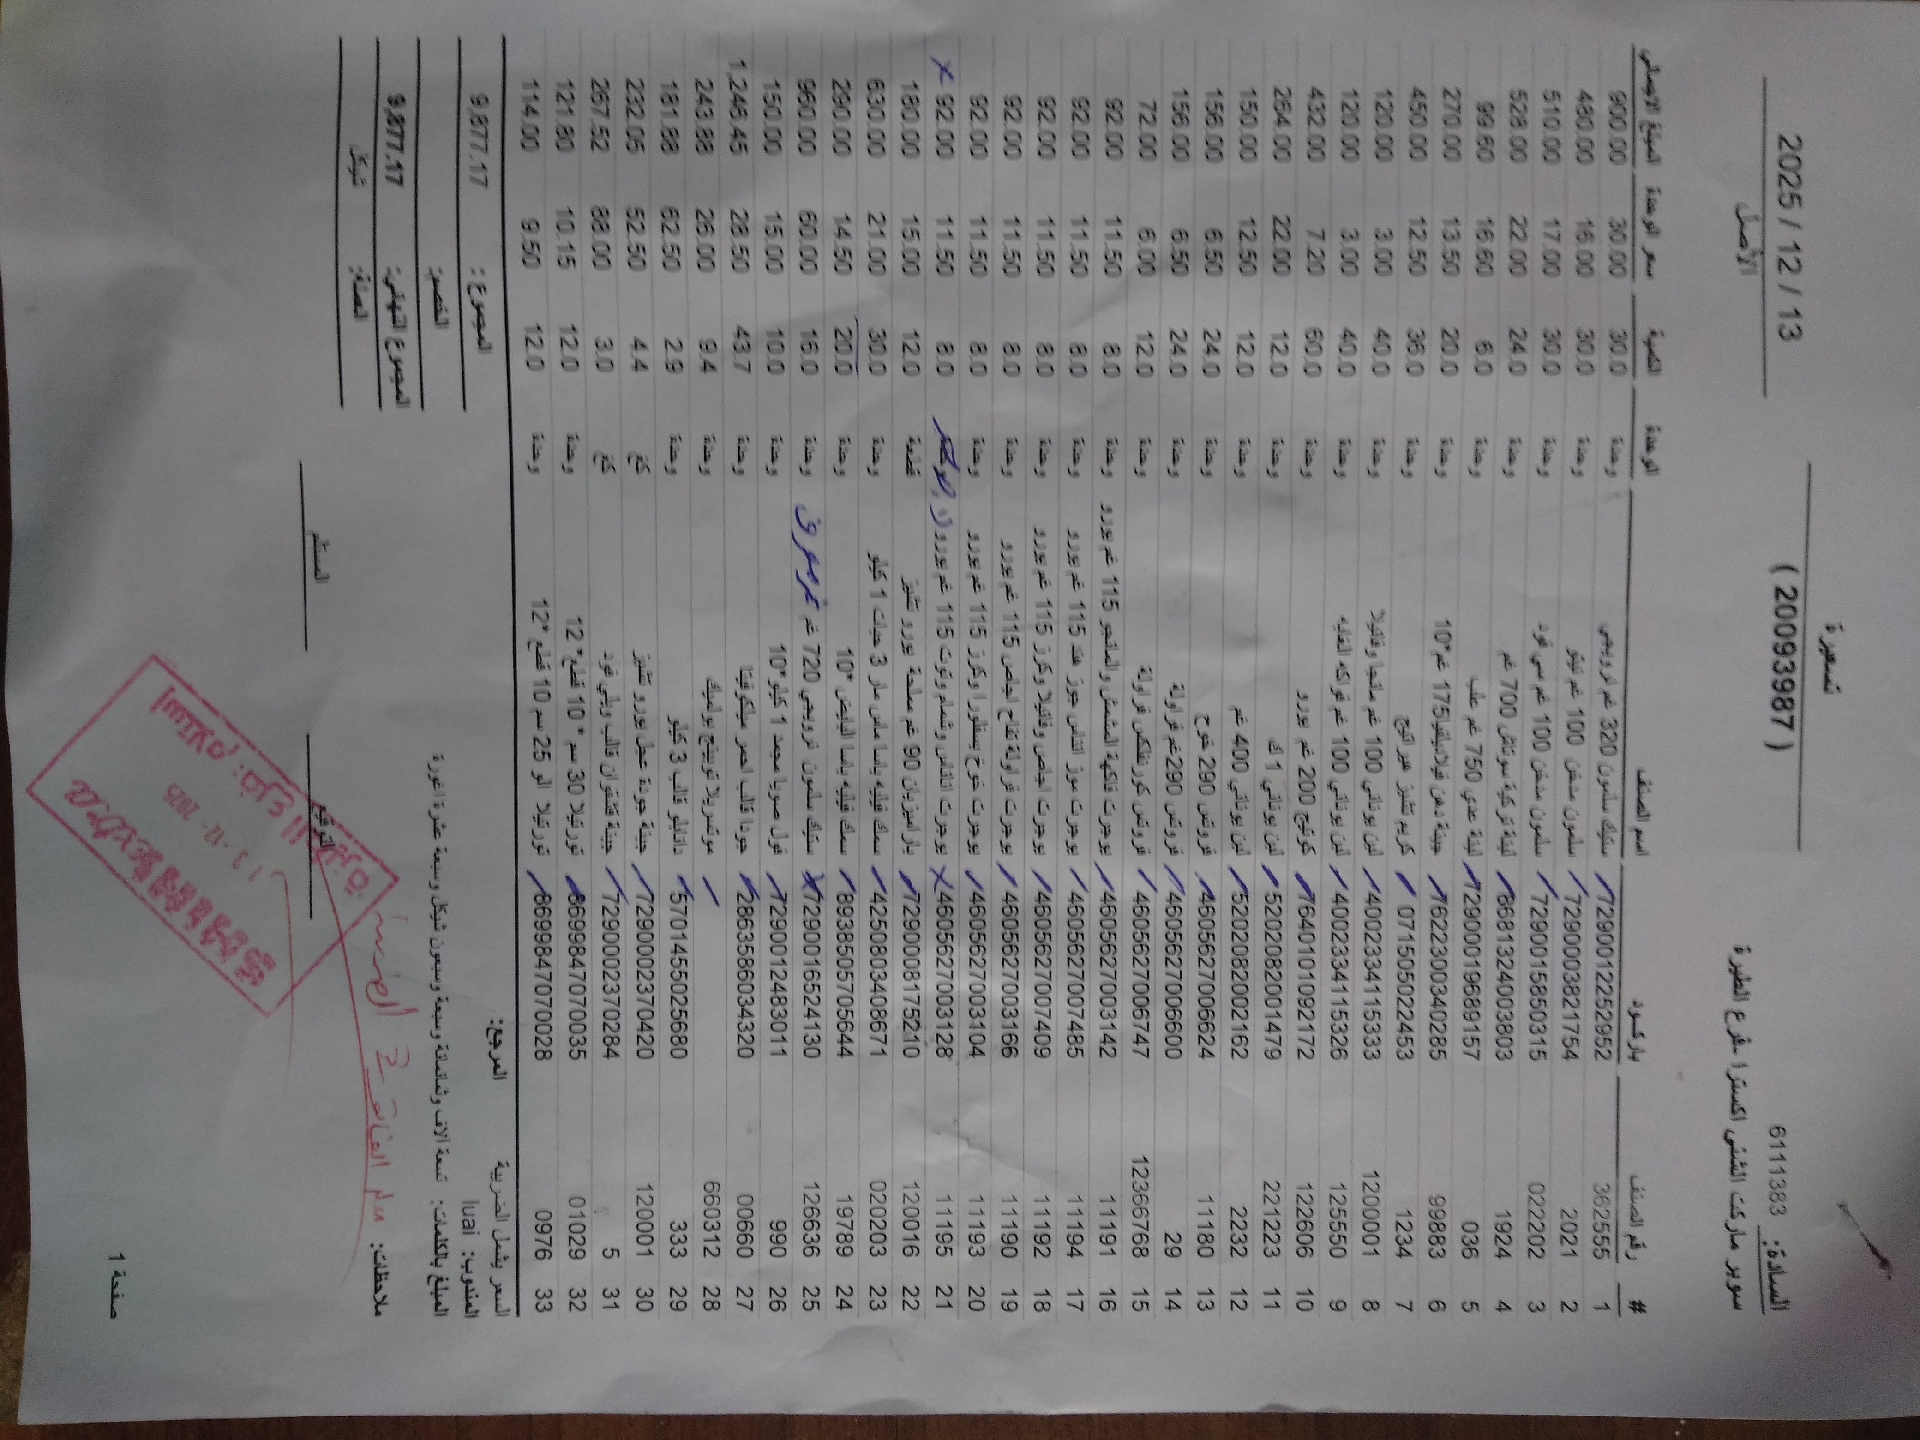 تسعيرة
2025 / 12 / 13
( 20093987 )
السادة: 6111383
الأصل
سوبر ماركت الشني اكسترا - فرع الطيرة
# رقم الصنف باركود اسم الصنف الوحدة الكمية سعر الوحدة المبلغ الاجمالي
1 362555 7290012252952 ستيك سلمون 320 غم نرويجي وحدة 30.0 30.00 900.00
2 2021 7290003821754 سلمون مدخن 100 غم نيتو وحدة 30.0 16.00 480.00
3 022202 7290015850315 سلمون مدخن 100 غم سي فود وحدة 30.0 17.00 510.00
4 1924 8681324003803 لبنة تركية سوتاش 700 غم وحدة 24.0 22.00 528.00
5 036 72900019689157 لبنة عدي 750 غم علب وحدة 6.0 16.60 99.60
6 99883 7622300340285 جبنة دهن فيلادلفيا 175 غم*10 وحدة 20.0 13.50 270.00
7 1234 071505022453 كريم تشيز مير اتيج وحدة 36.0 12.50 450.00
8 1200001 4002334115333 لبن يوناني 100 غم مانجا وفانيلا وحدة 40.0 3.00 120.00
9 125550 4002334115326 لبن يوناني 100 غم فواكه الغابه وحدة 40.0 3.00 120.00
10 122606 7640101092172 كوتيج 200 غم يورو وحدة 60.0 7.20 432.00
11 221223 5202082001479 لبن يوناني 1 ك وحدة 12.0 22.00 264.00
12 2232 5202082002162 لبن يوناني 400 غم وحدة 12.0 12.50 150.00
13 11180 4605627006624 فروتس 290 خوخ وحدة 24.0 6.50 156.00
14 29 4605627006600 فروتس 290 غم فراولة وحدة 24.0 6.50 156.00
15 12366768 4605627006747 فروتس كورنفلكس فراولة وحدة 12.0 6.00 72.00
16 11191 4605627003142 يوجرت فاكهة المشمش والمانجو 115 غم يورو وحدة 8.0 11.50 92.00
17 11194 4605627007485 يوجرت موز اناناس جوز هند 115 غم يورو وحدة 8.0 11.50 92.00
18 11192 4605627007409 يوجرت اجاص وفانيلا وكرز 115 غم يورو وحدة 8.0 11.50 92.00
19 11190 4605627003166 يوجرت فراولة تفاح اجاص 115 غم يورو وحدة 8.0 11.50 92.00
20 11193 4605627003104 يوجرت خوخ بسفلورا وكرز 115 غم يورو وحدة 8.0 11.50 92.00
21 11195 4605627003128 يوجرت اناناس وشمام وتوت 115 غم يورو 8.0 11.50 92.00 x
22 120016 7290008175210 بارميزيان 90 غم مملحة يورو تشيز قطعة 12.0 15.00 180.00
23 020203 4250803408671 سمك فيليه باسا ماس مار 3 حبات 1 كيلو وحدة 30.0 21.00 630.00
24 19789 8938505705644 سمك فيليه باسا البايض *10 وحدة 20.0 14.50 290.00
25 126636 7290016524130 ستيك سلمون نرويجي 720 غم وحدة 16.0 60.00 960.00
26 990 7290012483011 فول صويا مجمد 1 كيلو *10 وحدة 10.0 15.00 150.00
27 00660 2863586034320 جودا قالب احمر ميلكوفيتا وحدة 43.7 28.50 1,246.45
28 660312 موتسريلا توبينج بولميك وحدة 9.4 26.00 243.88
29 333 5701455025680 دانابلو قالب 3 كيلو وحدة 2.9 62.50 181.88
30 120001 7290002370420 جبينة جودة عجل يورو تشيز كغ 4.4 52.50 232.05
31 5 7290002370284 جبينة قشقوان قالب ويلي فود كغ 3.0 88.00 267.52
32 01029 8699847070035 تورتيلا 30 سم * 10 قطع * 12 وحدة 12.0 10.15 121.80
33 0976 8699847070028 تورتيلا الو 25 سم 10 قطع *12 وحدة 12.0 9.50 114.00
السعر يشمل الضريبة المرجع: المجموع: 9,877.17
المندوب: luai الخصم:
المبلغ بالكلمات: تسعة آلاف وثمانمائة وسبعة وسبعون شيكل وسبعة عشرة اغورة المجموع النهائي: 9,877.17
ملاحظات: العملة: شيكل
المستلم
التوقيع
13 -12- 2025
صفحة 1